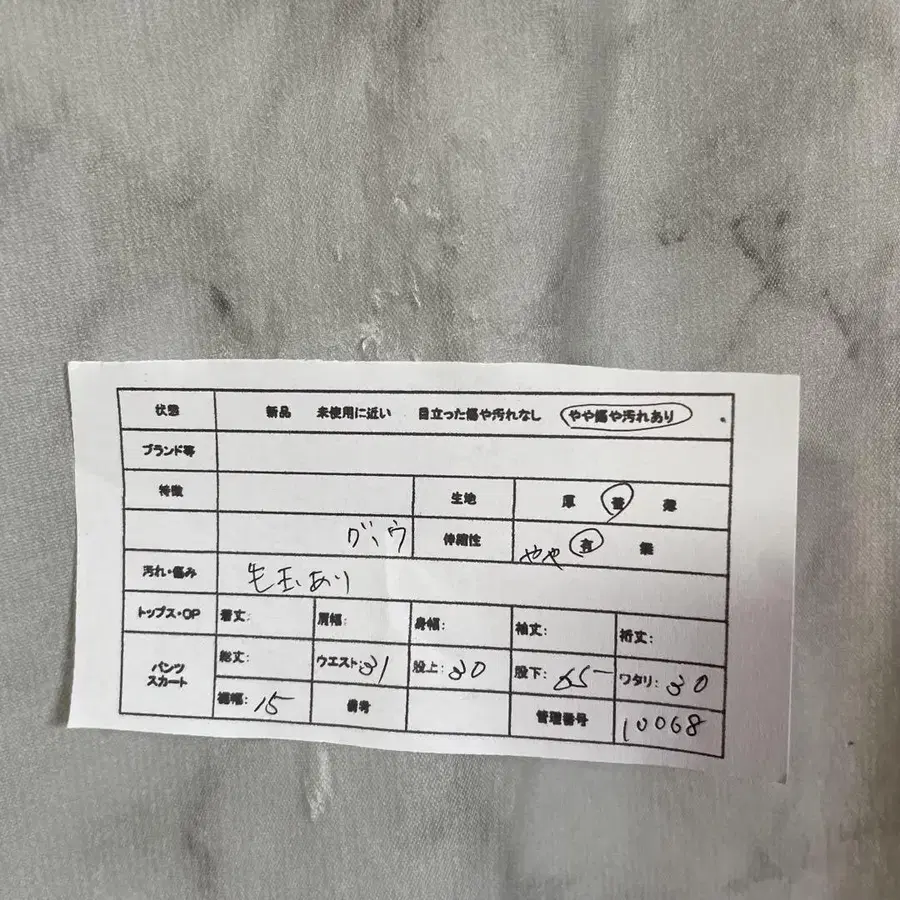 状態 新品 未使用に近い 目立った傷や汚れなし やや傷や汚れあり
ブランド等
特徴 生地 厚 普 薄
伸縮性 やや 有 無
汚れ・傷み 毛玉あり
トップス・OP 着丈: 肩幅: 身幅: 袖丈: 裄丈:
パンツ スカート 総丈: ウエスト:31 股上:30 股下:65 ワタリ:30
裾幅:15 備考 管理番号 10068